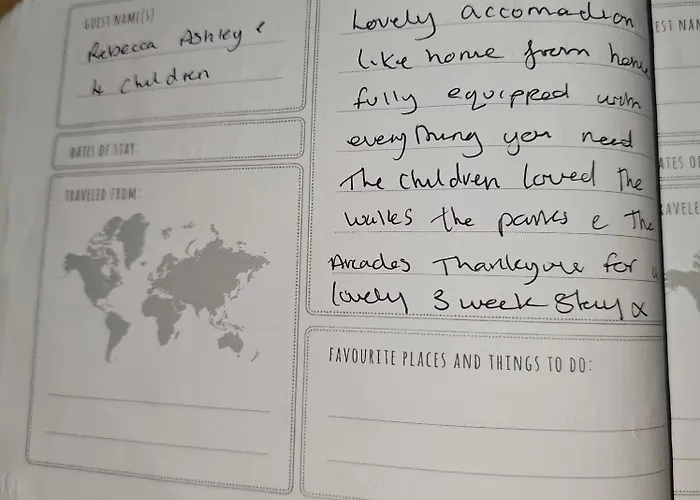 GUEST NAME(S)
Rebecca Ashley &
4 Children
DATES OF STAY:
TRAVELED FROM:
Lovely accomadion
like home from home
fully equipped with
everything you need
The children loved the
walks the parks & the
Arcades Thankyou for a
lovely 3 week stay x
FAVOURITE PLACES AND THINGS TO DO:
EST NAM
ATES OF
RAVELE